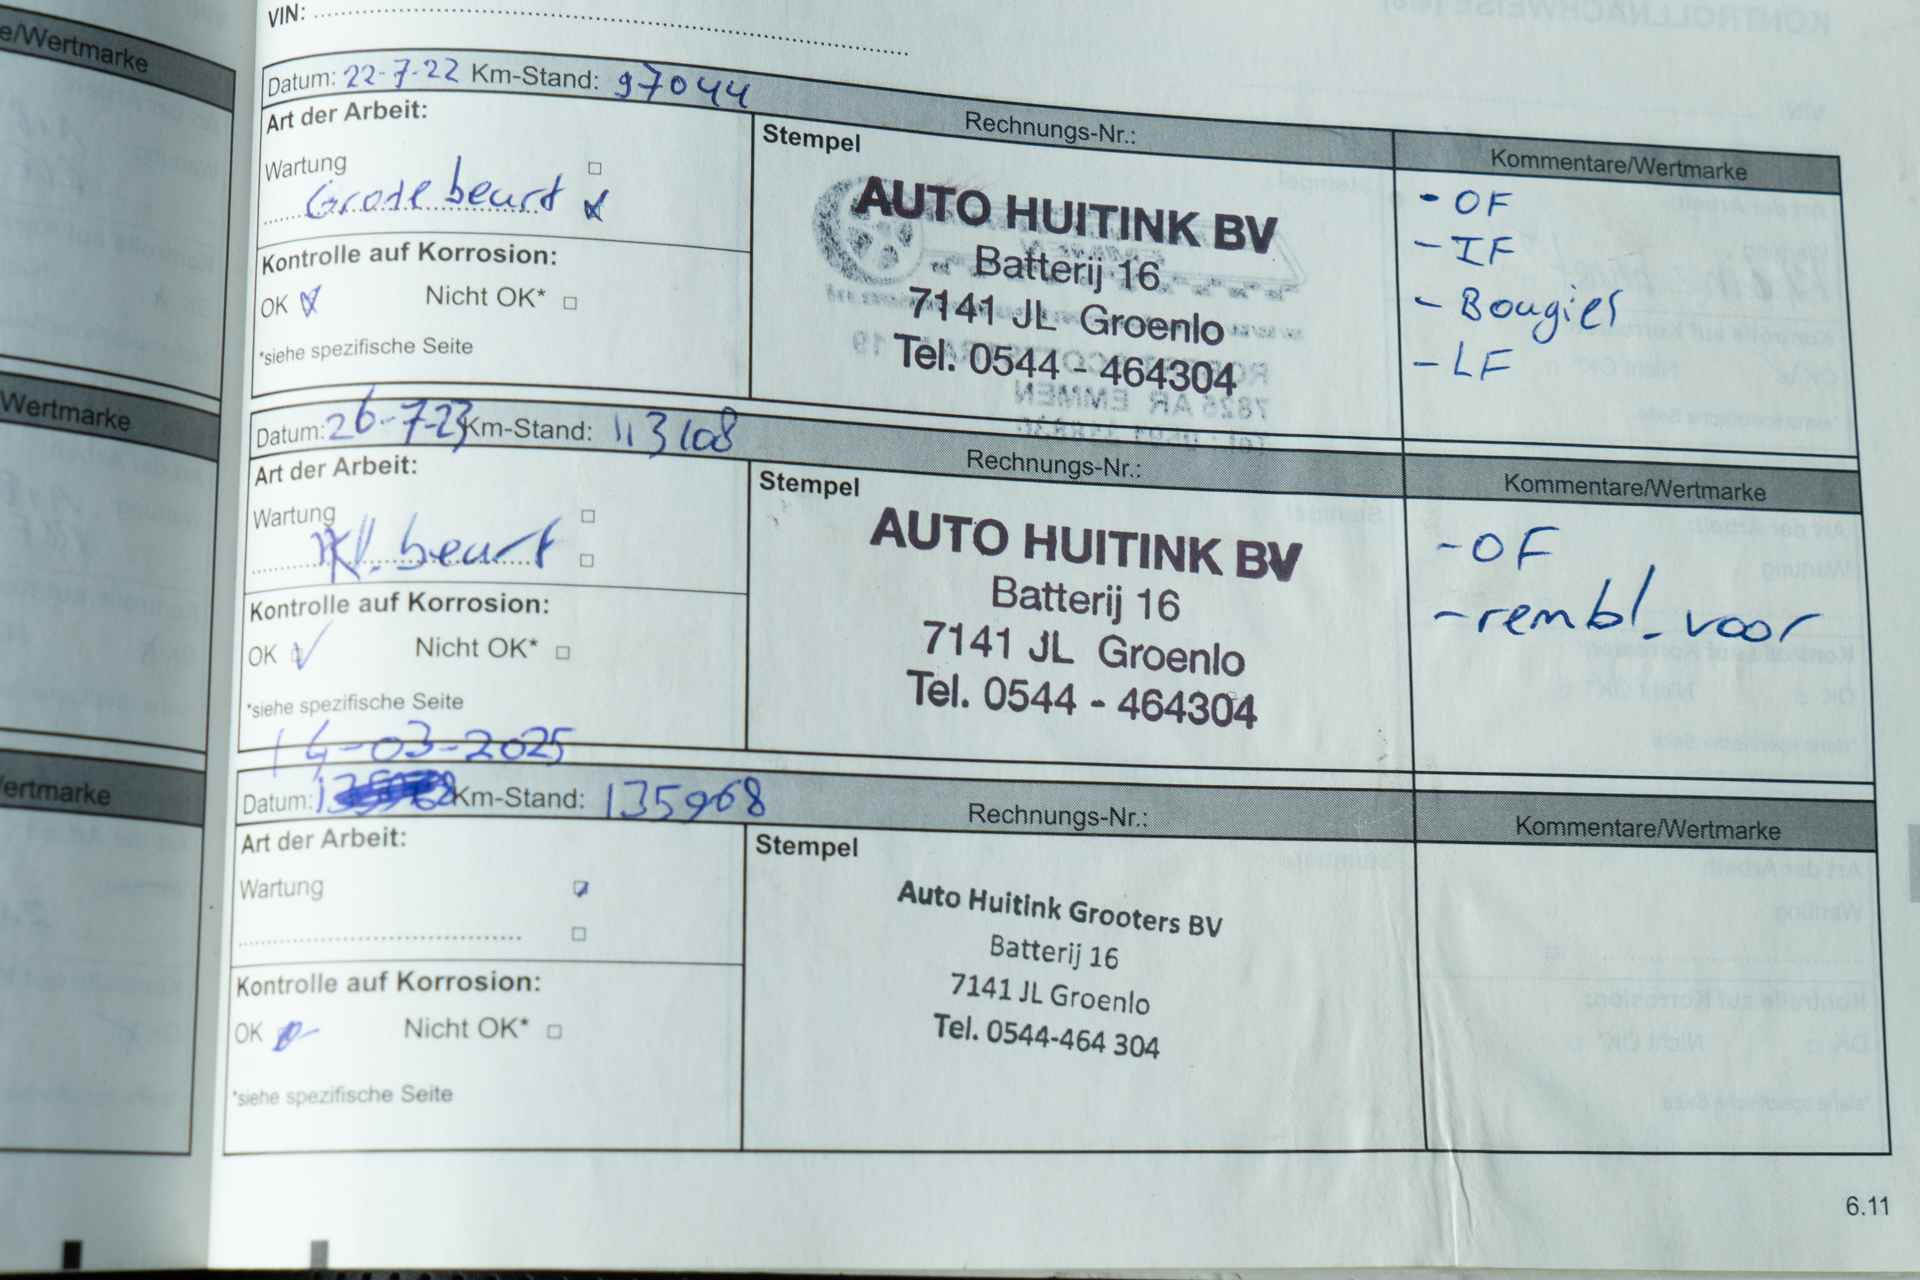 VIN:
Datum: 22-7-22 Km-Stand: 97044
Rechnungs-Nr.:
Kommentare/Wertmarke
Art der Arbeit:
Wartung
Grote beurt
Kontrolle auf Korrosion:
OK Nicht OK*
*siehe spezifische Seite
Stempel
AUTO HUITINK BV
Batterij 16
7141 JL Groenlo
Tel. 0544 - 464304
- OF
- IF
- Bougies
- LF
Datum: 26-7-23 Km-Stand: 113108
Rechnungs-Nr.:
Kommentare/Wertmarke
Art der Arbeit:
Wartung
Kl. beurt
Kontrolle auf Korrosion:
OK Nicht OK*
*siehe spezifische Seite
Stempel
AUTO HUITINK BV
Batterij 16
7141 JL Groenlo
Tel. 0544 - 464304
- OF
- rembl. voor
14-03-2025
Datum: Km-Stand: 135968
Rechnungs-Nr.:
Kommentare/Wertmarke
Art der Arbeit:
Wartung
Kontrolle auf Korrosion:
OK Nicht OK*
*siehe spezifische Seite
Stempel
Auto Huitink Grooters BV
Batterij 16
7141 JL Groenlo
Tel. 0544-464 304
6.11
e/Wertmarke
Wertmarke
ertmarke